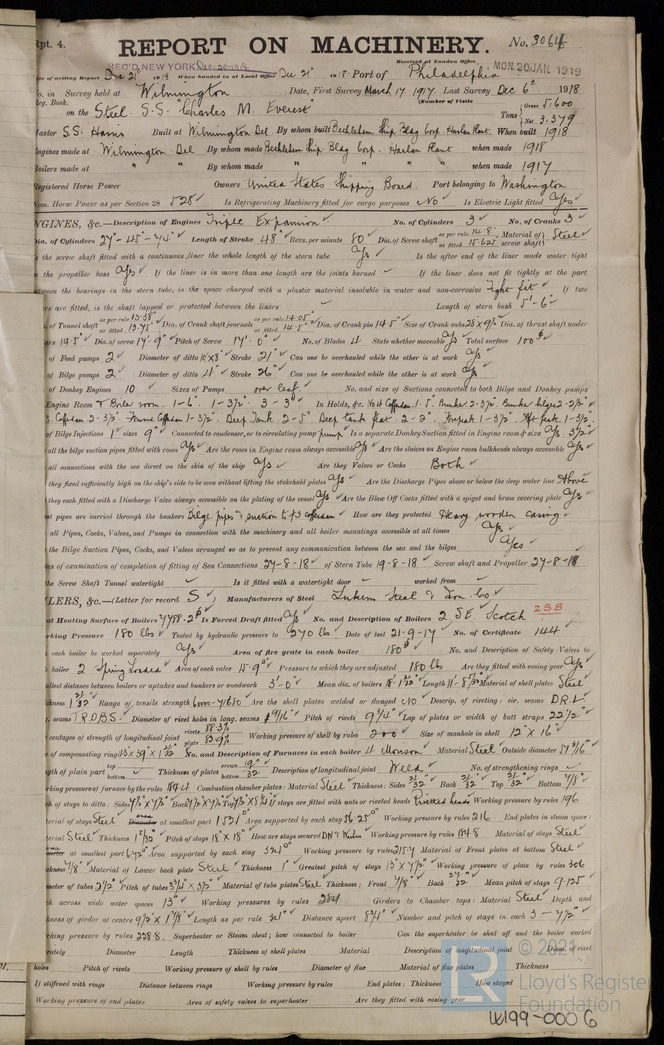 Rpt. 4. REPORT ON MACHINERY. No. 3064
REC'D NEW YORK Dec. 20. 1918 Received at London Office MON. 20 JAN 1919
Date of writing Report Dec 21st 1918 When handed in at Local Office Dec. 21st 1918. Port of Philadelphia
No. in Survey held at Wilmington Date, First Survey March 17 1917 Last Survey Dec 6th 1918
Reg. Book. (Number of Visits
on the Steel S.S. "Charles M. Everest" Tons Gross 5600 Net 3,379
Master S.S. Harris Built at Wilmington Del. By whom built Bethlehem Ship Bldg Corp. Harlan Plant When built 1918
Engines made at Wilmington Del By whom made Bethlehem Ship Bldg Corp. Harlan Plant when made 1918
Boilers made at " " By whom made " " " " when made 1917
Registered Horse Power Owners United States Shipping Board. Port belonging to Washington
Nom. Horse Power as per Section 28 528 Is Refrigerating Machinery fitted for cargo purposes No Is Electric Light fitted Yes
ENGINES, &c.—Description of Engines Triple Expansion No. of Cylinders 3 No. of Cranks 3
Dia. of Cylinders 27"-45"-74" Length of Stroke 48" Revs. per minute 80 Dia. of Screw shaft as per rule 14.8 as fitted 15.625 Material of screw shaft Steel
Is the screw shaft fitted with a continuous liner the whole length of the stern tube Yes Is the after end of the liner made water tight
in the propeller boss Yes If the liner is in more than one length are the joints burned If the liner does not fit tightly at the part
between the bearings in the stern tube, is the space charged with a plastic material insoluble in water and non-corrosive Tight fit If two
liners are fitted, is the shaft lapped or protected between the liners Length of stern bush 5'-6"
Dia. of Tunnel shaft as per rule 13.38 as fitted 13.75 Dia. of Crank shaft journals as per rule 14.05 as fitted 14.5 Dia. of Crank pin 14.5 Size of Crank webs 28 x 9½ Dia. of thrust shaft under
collars 14.5 Dia. of screw 17'-9" Pitch of Screw 17'-0" No. of Blades 4 State whether moveable Yes Total surface 100
No. of Feed pumps 2 Diameter of ditto 10"x8" Stroke 21" Can one be overhauled while the other is at work Yes
No. of Bilge pumps 2 Diameter of ditto 4" Stroke 26" Can one be overhauled while the other is at work Yes
No. of Donkey Engines 10 Sizes of Pumps over leaf. No. and size of Suctions connected to both Bilge and Donkey pumps
Engine Room & Boiler room. 1-6". 1-3½". 3-3" In Holds, &c. No 4 Cofferdam 1-5". Bunker 2-3½". Bunker bilges 2-2½"
3. Cofferdam 2-3½". Forward Cofferdam 1-3½". Deep Tank. 2-5" Deep tank flat 2-2" Forepeak 1-3½". Aft peak 1-3½"
No. of Bilge Injections 1 sizes 9" Connected to condenser, or to circulating pump pump Is a separate Donkey Suction fitted in Engine room & size Yes. 3½"
all the bilge suction pipes fitted with roses Yes Are the roses in Engine room always accessible Yes Are the sluices on Engine room bulkheads always accessible Yes
all connections with the sea direct on the skin of the ship Yes Are they Valves or Cocks Both
they fixed sufficiently high on the ship's side to be seen without lifting the stokehold plates Yes Are the Discharge Pipes above or below the deep water line Above
they each fitted with a Discharge Valve always accessible on the plating of the vessel Yes Are the Blow Off Cocks fitted with a spigot and brass covering plate Yes
pipes are carried through the bunkers Bilge pipes & suction to #3 cofferdam How are they protected Heavy wooden casing
all Pipes, Cocks, Valves, and Pumps in connection with the machinery and all boiler mountings accessible at all times Yes
the Bilge Suction Pipes, Cocks, and Valves arranged so as to prevent any communication between the sea and the bilges Yes
Dates of examination of completion of fitting of Sea Connections 27-8-18 of Stern Tube 19-8-18 Screw shaft and Propeller 27-8-18
the Screw Shaft Tunnel watertight Is it fitted with a watertight door worked from
BOILERS, &c.—(Letter for record S) Manufacturers of Steel Lukens Steel & Iron Co
Total Heating Surface of Boilers 7488.2 Is Forced Draft fitted Yes No. and Description of Boilers 2 S.E. Scotch 2SB
Working Pressure 180 lbs Tested by hydraulic pressure to 270 lbs Date of test 21-9-17 No. of Certificate 144
each boiler be worked separately Yes Area of fire grate in each boiler 180 No. and Description of Safety Valves to
boiler 2 Spring Loaded Area of each valve 15.9" Pressure to which they are adjusted 180 lbs Are they fitted with easing gear Yes
smallest distance between boilers or uptakes and bunkers or woodwork 3'-0" Mean dia. of boilers Length Material of shell plates Steel
Thickness Range of tensile strength Are the shell plates welded or flanged no Descrip. of riveting: cir. seams D.R.L.
seams T.R.D.B.S. Diameter of rivet holes in long. seams 1 9/16" Pitch of rivets 9¾" Lap of plates or width of butt straps 22½"
percentages of strength of longitudinal joint rivets 88.3% plate 83.9% Working pressure of shell by rules 200 Size of manhole in shell 12" x 16"
of compensating ring No. and Description of Furnaces in each boiler 4 Morison Material Steel Outside diameter
Length of plain part top bottom Thickness of plates crown bottom Description of longitudinal joint Weld No. of strengthening rings
Working pressure of furnace by the rules 184.4 Combustion chamber plates: Material Steel Thickness: Sides Back Top Bottom 7/8"
Pitch of stays to ditto: Sides Back Top If stays are fitted with nuts or riveted heads Riveted heads Working pressure by rules 196
Material of stays Steel area at smallest part Area supported by each stay Working pressure by rules 216 End plates in steam space:
Material Steel Thickness 1 1/32" Pitch of stays 18" x 18" How are stays secured Working pressure by rules 184.8 Material of stays Steel
at smallest part Area supported by each stay 324 Working pressure by rules 215.4 Material of Front plates at bottom Steel
Thickness 7/8" Material of Lower back plate Steel Thickness 1" Greatest pitch of stays 13" x 7½" Working pressure of plate by rules 306
Diameter of tubes 2½" Pitch of tubes 3¾" x 3½" Material of tube plates Steel Thickness: Front 7/8" Back 27/32" Mean pitch of stays 9.125
across wide water spaces 13" Working pressures by rules 284 Girders to Chamber tops: Material Steel Depth and
thickness of girder at centre 9½ x 1 7/8" Length as per rule Distance apart 8¾" Number and pitch of stays in each 3 - 7½"
Working pressure by rules 228.8. Superheater or Steam chest; how connected to boiler Can the superheater be shut off and the boiler worked
separately Diameter Length Thickness of shell plates Material Description of longitudinal joint Diam. of rivet
holes Pitch of rivets Working pressure of shell by rules Diameter of flue Material of flue plates Thickness
If stiffened with rings Distance between rings Working pressure by rules End plates: Thickness How stayed
Working pressure of end plates Area of safety valves to superheater Are they fitted with easing gear
© 2021
LR Lloyd's Register
Foundation
W199-0006